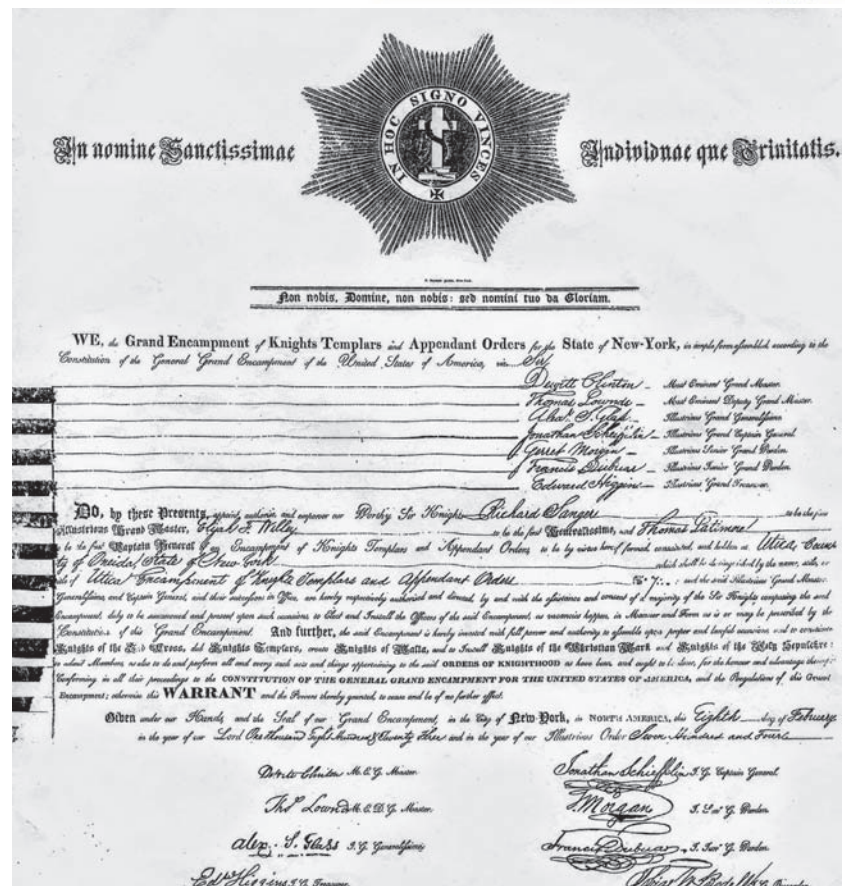 IN HOC SIGNO VINCES
In nomine Sanctissimae Individuae que Trinitatis.
Non nobis, Domine, non nobis: sed nomini tuo da Gloriam.
WE, the Grand Encampment of Knights Templars and Appendant Orders for the State of New-York, in ample form assembled according to the
Constitution of the General Grand Encampment of the United States of America, viz. Sir
Dewitt Clinton - Most Eminent Grand Master.
Thomas Lownds - Most Eminent Deputy Grand Master.
Alexr. S. Glass - Illustrious Grand Generalissimo.
Jonathan Schieffelin - Illustrious Grand Captain General
Illustrious Senior Grand Warden
Illustrious Junior Grand Warden.
Edward Higgin - Illustrious Grand Treasurer.
DO, by these Presents, appoint, authorise and empower our Worthy Sir Knights Richard Sanger to be the first
Illustrious Grand Master, Elijah F. Willey to be the first Generalissimo, and Thomas Latimore
to be the first Captain General of an Encampment of Knights Templars and Appendant Orders, to be by virtue hereof formed, constituted, and holden at Utica, Coun
ty of Oneida, State of New York which shall be distinguished by the name, stile, or
title of Utica Encampment of Knights Templars and Appendant Orders No. 7: and the said Illustrious Grand Master,
Generalissimo, and Captain General, and their successors in Office, are hereby respectively authorised and directed, by and with the assistance and consent of a majority of the Sir Knights composing the said
Encampment, duly to be summoned and present upon such occasions, to Elect and Install the Officers of the said Encampment, as vacancies happen, in Manner and Form as is or may be prescribed by the
Constitution of this Grand Encampment. And further, the said Encampment is hereby invested with full power and authority to assemble upon proper and lawful occasions and to
Knights of the Red Cross, dub Knights Templars, create Knights of Malta, and to Install Knights of the Christian Mark and Knights of the Holy Sepulchre:
to admit Members, as also to do and perform all and every such acts and things appertaining to the said ORDERS OF KNIGHTHOOD as have been and ought to be done, for the honour and advantage thereof
Conforming in all their proceedings to the CONSTITUTION OF THE GENERAL GRAND ENCAMPMENT FOR THE UNITED STATES OF AMERICA, and the Regulations of this Grand
Encampment; otherwise this WARRANT and the Powers thereby granted, to cease and be of no further effect.
Given under our Hands and the Seal of our Grand Encampment, in the City of New-York, in NORTH AMERICA, this Eighth day of February
in the year of our Lord One thousand Eight Hundred & Twenty Three and in the year of our Illustrious Order Seven Hundred and Four
Dewitt Clinton M. E. G. Master. Jonathan Schieffelin I. G. Captain General
Thos. Lownds M. E. D. G. Master. Morgan I. Senr G. Warden.
Alex. S. Glass I. G. Generalissimo I. Junr G. Warden
Edw Higgins I. G. Treasurer